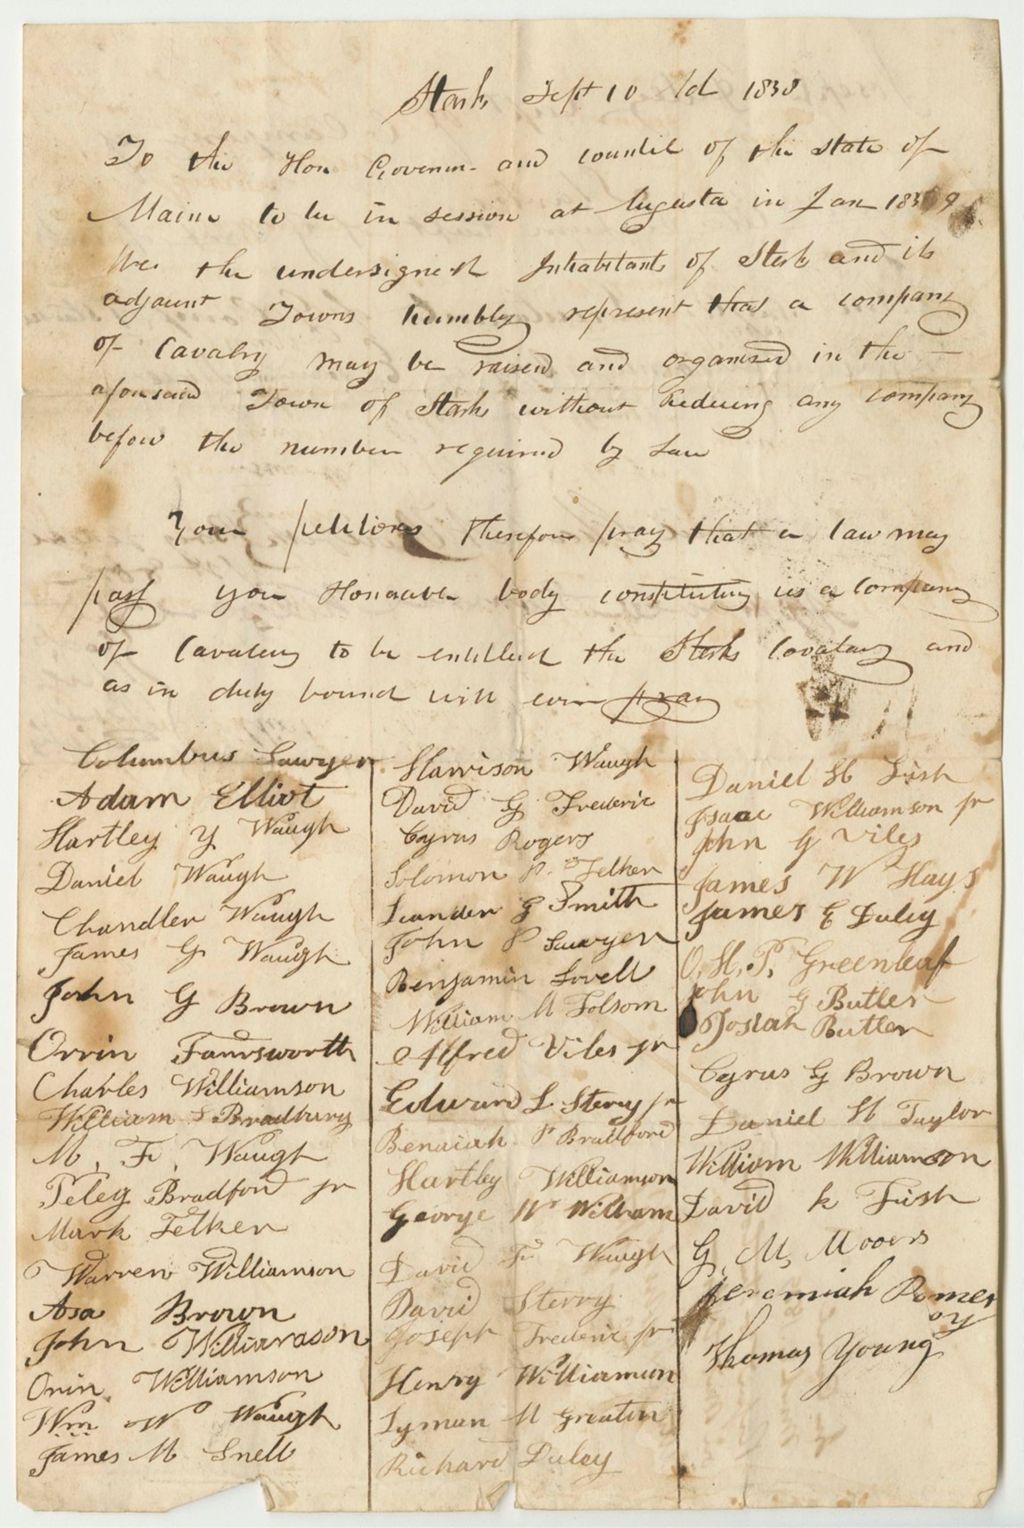 Stark Sept 10 1838
To the Hon Governor and council of the State of
Maine to be in session at Augusta in Jan 1839
We the undersigned Inhabitants of Stark and its
adjacent Towns humbly represent that a company
of Cavalry may be raised and organised in the
aforesaid Town of Stark without Reducing any company
below the number required by Law
Your petitioners therefore pray that a law may
pass your Honorable body constituting us a company
of Cavalery to be entitled the Stark Cavalary and
as in duty bound will ever pray
Columbus Sawyer
Adam Elliot
Hartley Y Waugh
Daniel Waugh
Chandler Waugh
James G Waugh
John G Brown
Orrin Farnsworth
Charles Williamson
William S Bradbury
M. F. Waugh
Peleg Bradford jr
Mark Felker
Warren Williamson
Asa Brown
John Williamson
Orin Williamson
Wm W Waugh
James M Snell
Harrison Waugh
David G Frederic
Cyrus Rogers
Solomon P. Felker
Leander G Smith
John P Sawyer
Benjamin Lovell
William M Folsom
Alfred Viles jr
Edward L Sterry jr
Benaiah P Bradford
Hartley Williamson
George W Williams
David F Waugh
David Sterry
Joseph Frederic jr
Henry Williamson
Lyman M Greaton
Richard Duley
Daniel H Fish
Isaac Williamson jr
John G Viles
James W Hays
James E Duley
O. H. P. Greenleaf
John G Butler
Josiah Butler
Cyrus G Brown
Daniel H Taylor
William Williamson
David K Fish
G. M. Moores
Jeremiah Pomeroy
Thomas Young